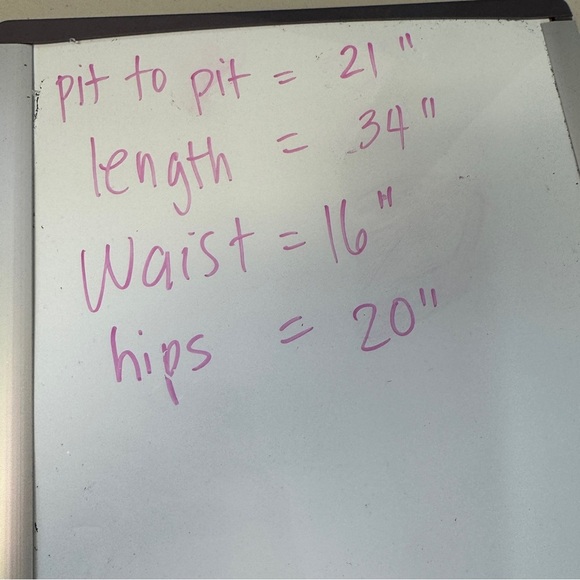 pit to pit = 21"
length = 34"
Waist = 16"
hips = 20"